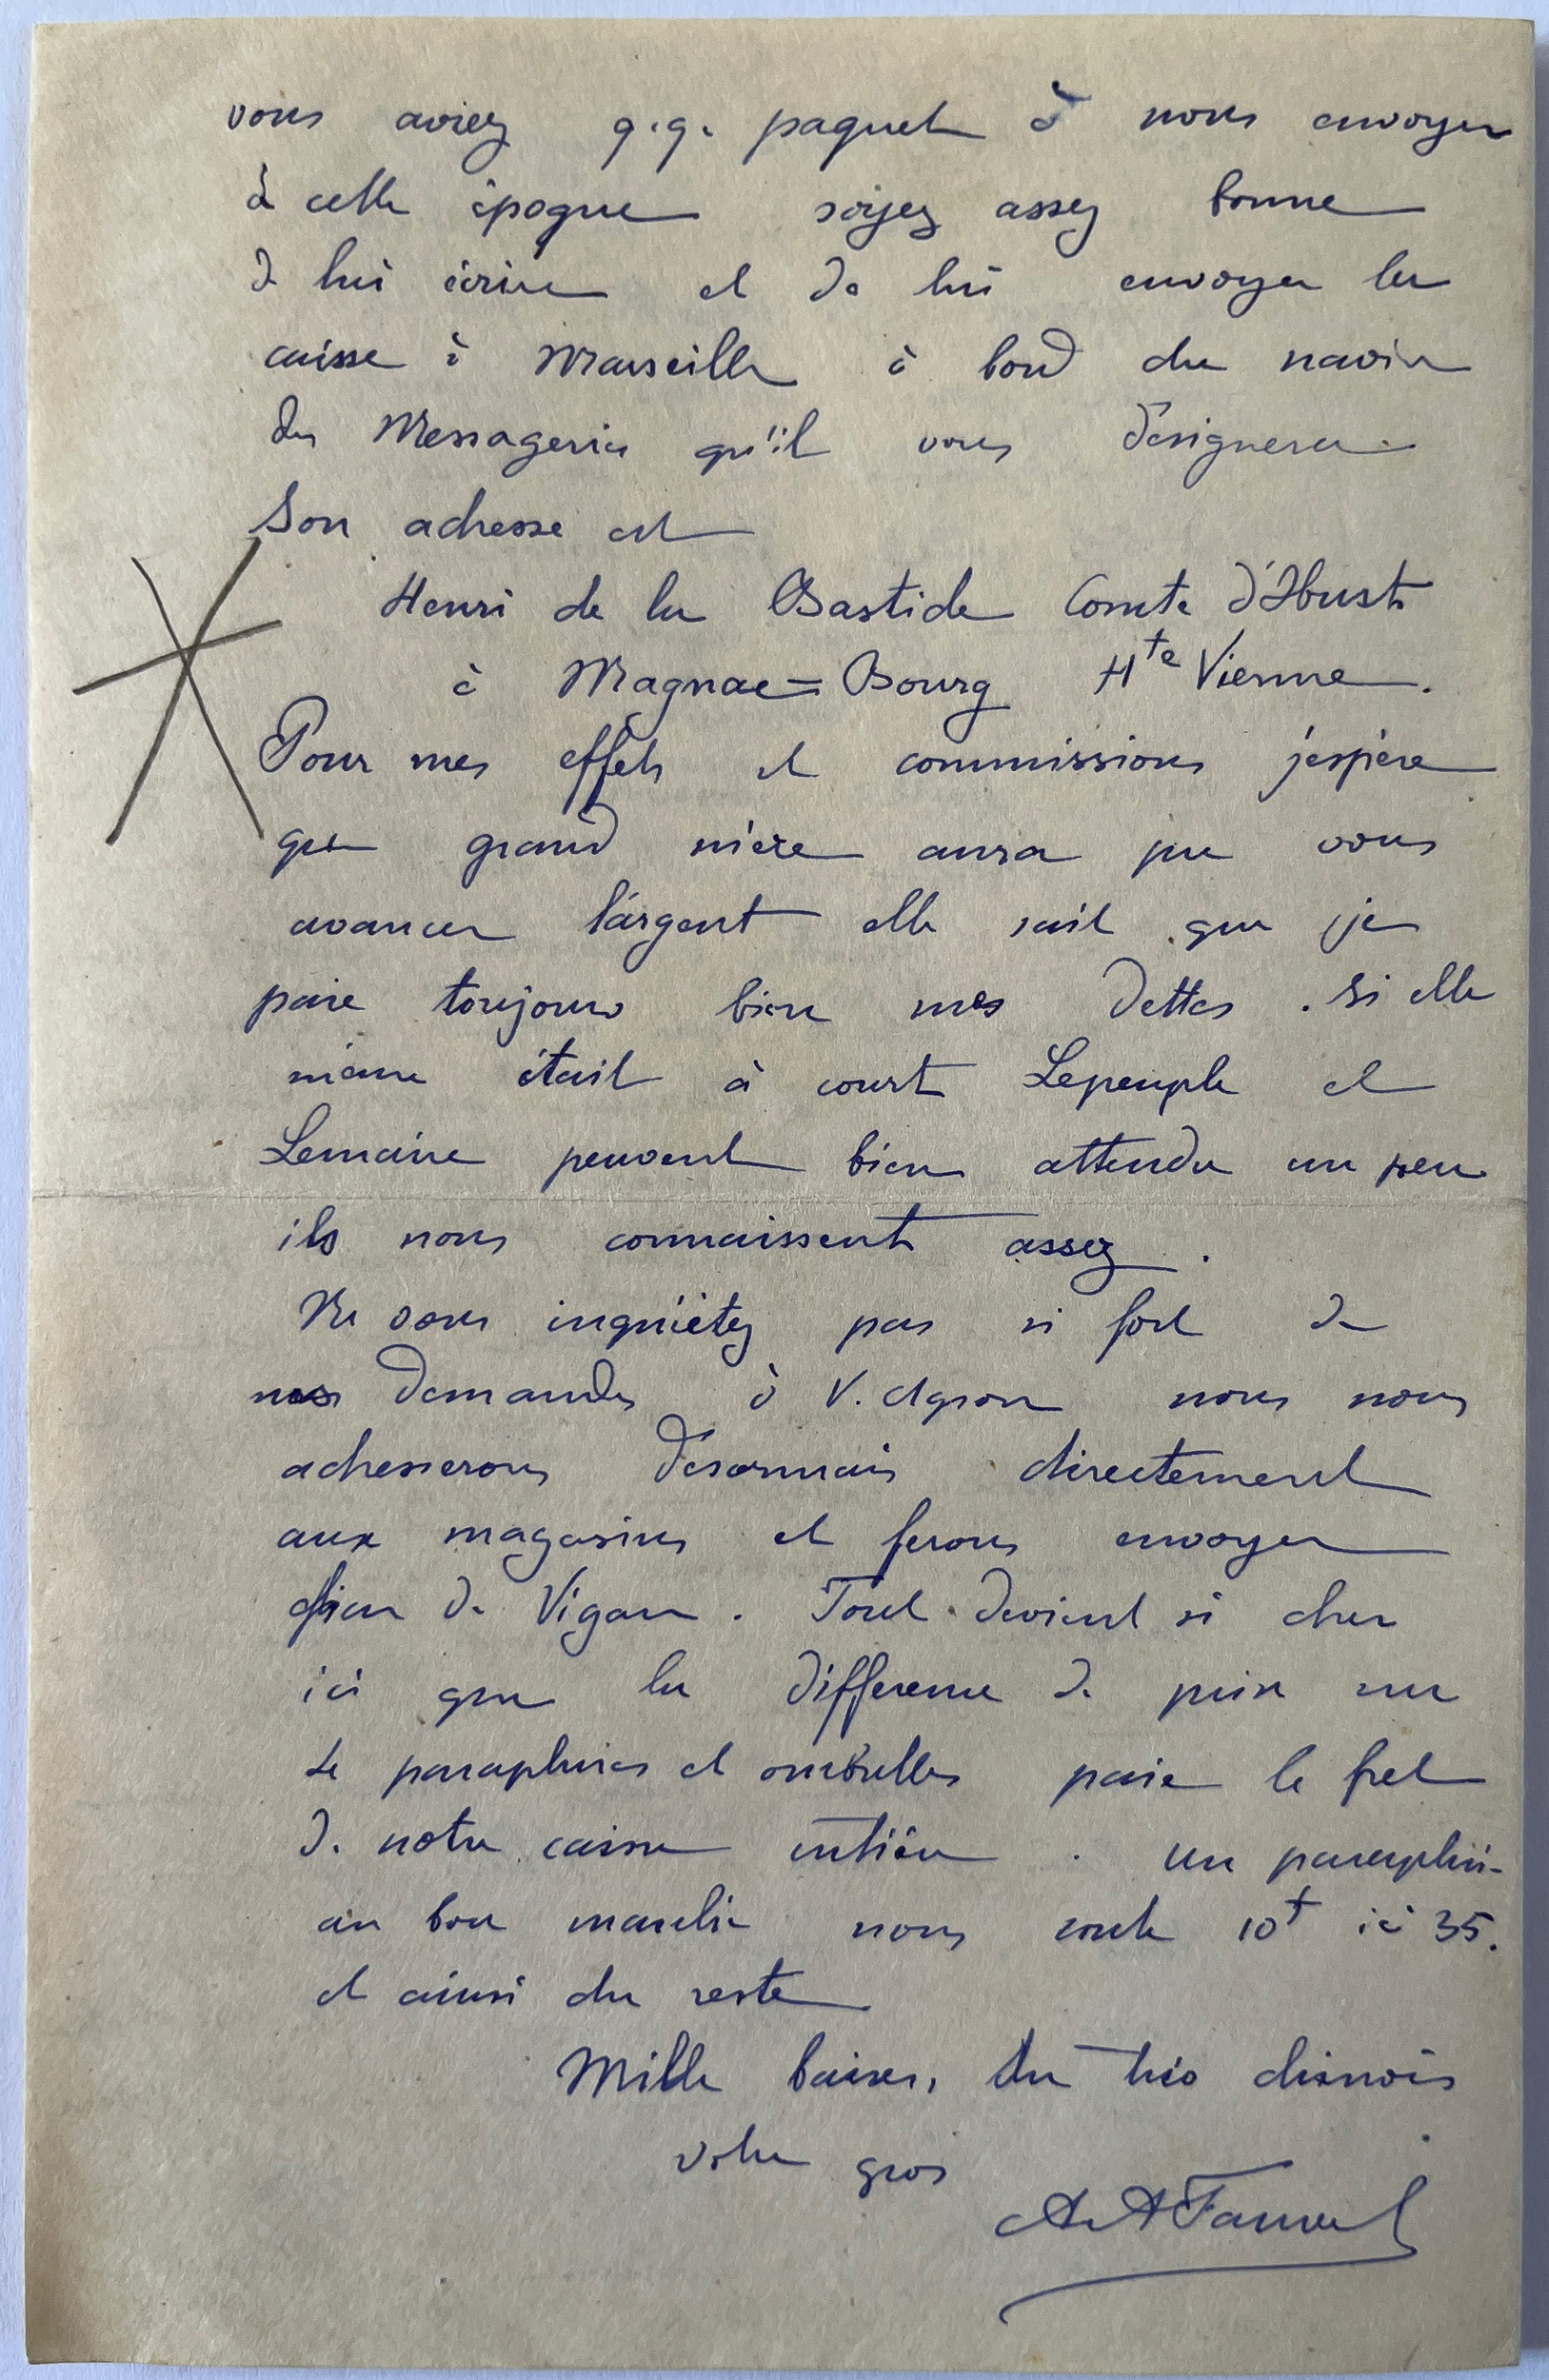 vous aviez q.q. paquet à nous envoyer
à cette époque soyez assez bonne
de lui écrire et de lui envoyer la
caisse à Marseille à bord du navire
des Messageries qu'il vous désignera.
Son adresse est
Henri de la Bastide Comte d'
à Magnac=Bourg Hte Vienne.
Pour mes effets et commissions j'espère
que grand mère aura pu vous
avancer l'argent elle sait que je
paie toujours bien mes dettes. Si elle
même était à court Lepeuple et
Lemaire peuvent bien attendre un peu
ils nous connaissent assez.
Ne vous inquiétez pas si fort de
nos demandes à V. nous nous
adresserons désormais directement
aux magasins et ferons envoyer
de. Tout devient si cher
ici que la différence de prix sur
le parapluies et ombrelles paie le fret
de notre caisse entière. un parapluie
au bon marché nous coute 10f ici 35.
et ainsi du reste
Mille baisers, du trio chinois
votre gros